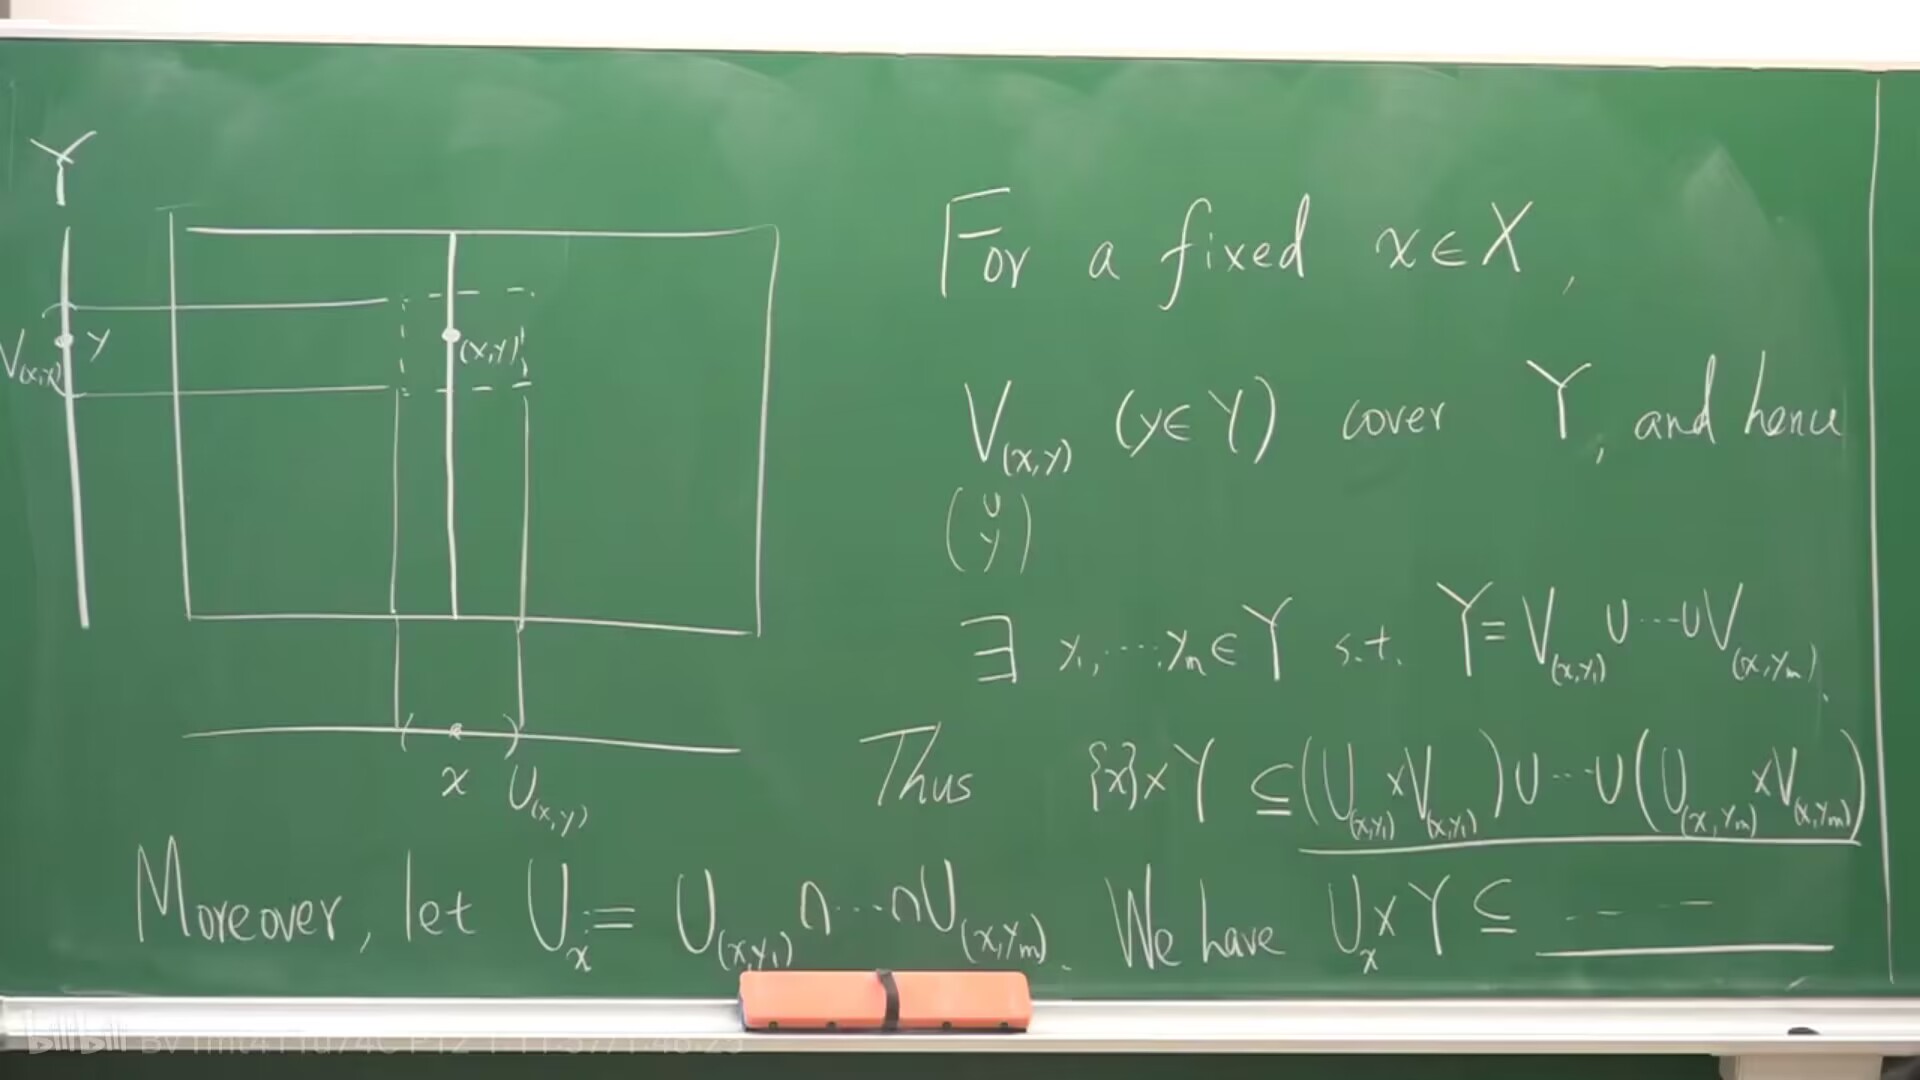 Y
V_(x,y) y
(x,y)
x U_(x,y)
For a fixed x∈X,
V_(x,y) (y∈Y) cover Y, and hence
(∪ y)
∃ y₁,⋯,yₘ∈Y s.t. Y=V_(x,y₁)∪⋯∪V_(x,yₘ).
Thus {x}×Y ⊆(U_(x,y₁)×V_(x,y₁))∪⋯∪(U_(x,yₘ)×V_(x,yₘ))
Moreover, let U_x:= U_(x,y₁)∩⋯∩U_(x,yₘ). We have U_x×Y⊆ ----
bilibili